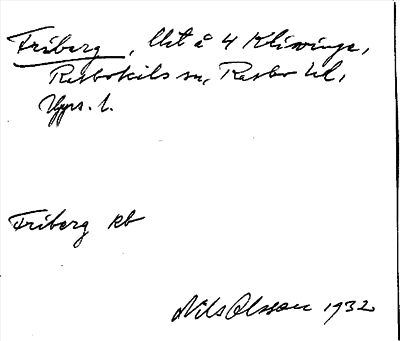 Friberg, lht å 4 Klivinge,
Rasbokils sn, Rasbo hd,
Upps. l.
Friberg kb
Nils Olsson 1932